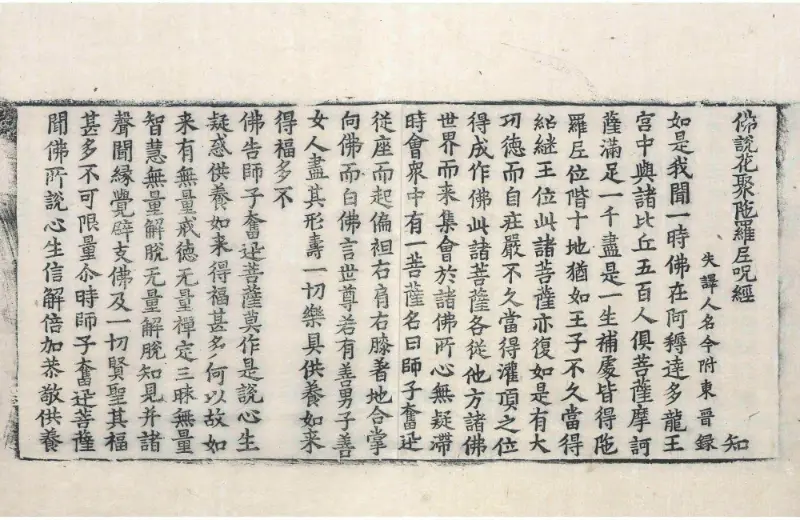 佛說花聚陁羅尼呪經
失譯人名今附東晉錄
知
如是我聞一時佛在阿耨達多龍王
宮中與諸比丘五百人俱菩薩摩訶
薩滿足一千盡是一生補處皆得陁
羅尼位階十地猶如王子不久當得
紹継王位此諸菩薩亦復如是有大
功德而自莊嚴不久當得灌頂之位
得成作佛此諸菩薩各從他方諸佛
世界而来集會於諸佛所心無疑滯
時會衆中有一菩薩名曰師子奮迅
從座而起偏袒右肩右膝著地合掌
向佛而白佛言世尊若有善男子善
女人盡其形壽一切樂具供養如来
得福多不
佛告師子奮迅菩薩莫作是說心生
疑惑供養如来得福甚多何以故如
来有無量戒德无量禪定三昧無量
智慧無量解脫无量解脫知見并諸
聲聞緣覺辟支佛及一切賢聖其福
甚多不可限量尒時師子奮迅菩薩
聞佛所說心生信解倍加恭敬供養